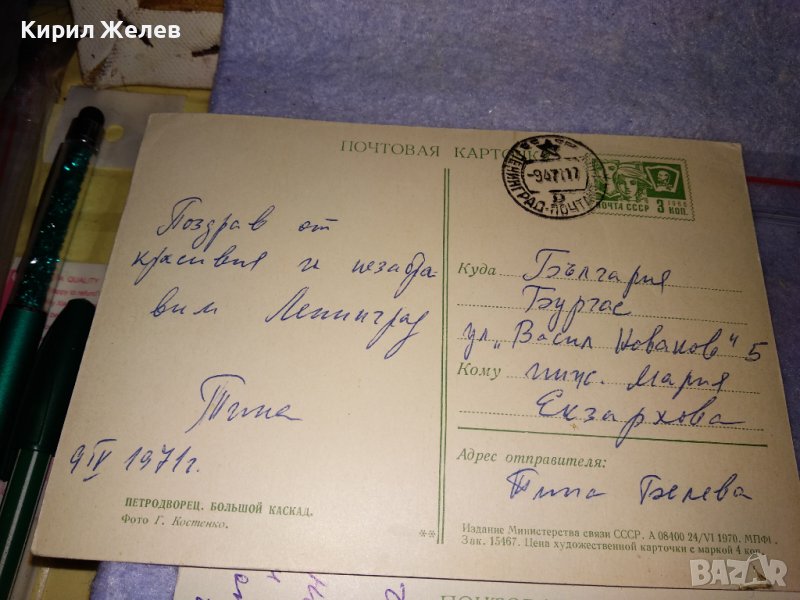 Кирил Желев
QUALITY
ПОЧТОВАЯ КАРТОЧКА
ЛЕНИНГРАД-ПОЧТАМТ
-9471.17
ПОЧТА СССР 3 КОП.
1966
Поздрав от
красивия и незабра-
вим Ленинград
Тина
9 IV 1971 г.
ПЕТРОДВОРЕЦ. БОЛЬШОЙ КАСКАД.
Фото Г. Костенко.
**
Куда България
Бургас
ул. „Васил Новаков" 5
Кому инж. Мария
Екзархова
Адрес отправителя:
Тина Белева
Издание Министерства связи СССР. А 08400 24/VI 1970. МПФГ.
Зак. 15467. Цена художественной карточки с маркой 4 коп.
BAZAR